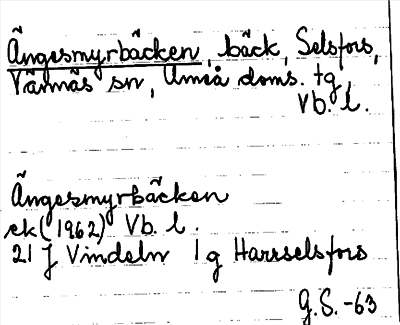 Ängesmyrbäcken, bäck, Selsfors,
Vännäs sn, Umeå doms. tg
Vb. l.
Ängesmyrbäcken
ek (1962) Vb. l.
21 J Vindeln 1 g Harrselsfors
G.S. -63